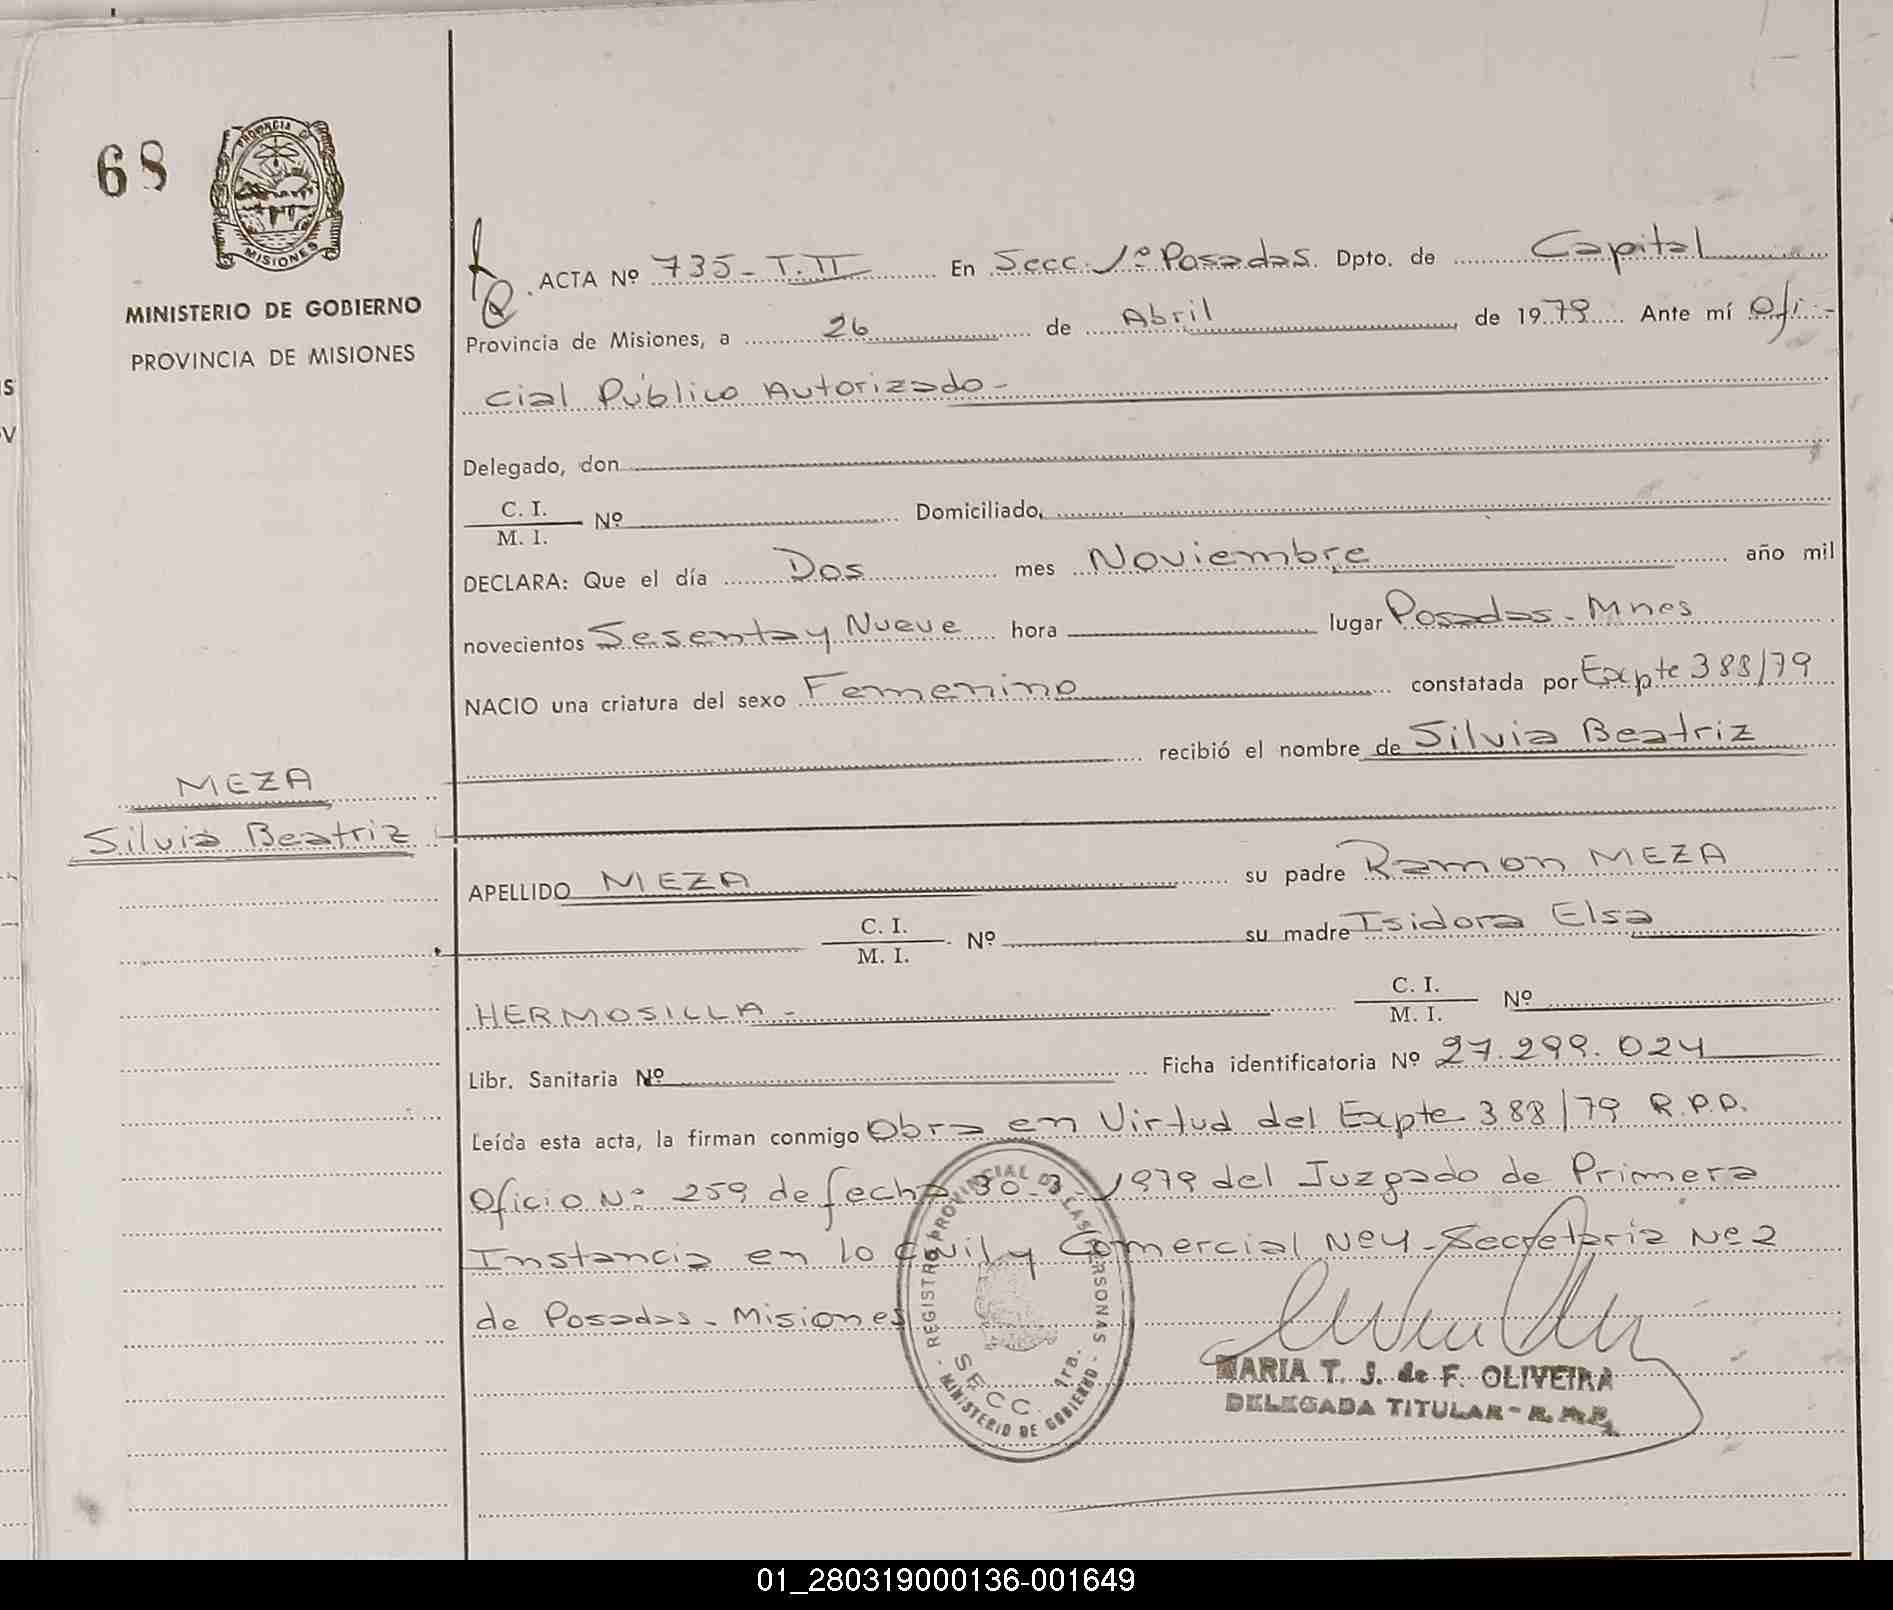 68
PROVINCIA DE
MISIONES
MINISTERIO DE GOBIERNO
PROVINCIA DE MISIONES
MEZA
Silvia Beatriz
ACTA Nº 735-T.II En Secc. 1º Posadas. Dpto. de Capital
Provincia de Misiones, a 26 de Abril de 1979 Ante mí Ofi-
cial Público Autorizado-
Delegado, don
C. I.
M. I. Nº Domiciliado,
DECLARA: Que el día Dos mes Noviembre año mil
novecientos Sesenta y Nueve hora lugar Posadas-Mnes
NACIO una criatura del sexo Femenino constatada por Expte 388/79
recibió el nombre de Silvia Beatriz
APELLIDO MEZA su padre Ramon MEZA
C. I.
M. I. Nº su madre Isidora Elsa
HERMOSILLA- C. I.
M. I. Nº
Libr. Sanitaria Nº Ficha identificatoria Nº 27.299.024
Leída esta acta, la firman conmigo Obra en Virtud del Expte 388/79 R.P.P.
Oficio Nº 259 de fecha 30-3-1979 del Juzgado de Primera
Instancia en lo Civil y Comercial Nº4-Secretaria Nº2
de Posadas-Misiones
REGISTRO PROVINCIAL DE LAS PERSONAS - MINISTERIO DE GOBIERNO -
SECC. 1ra.
MARIA T. J. de F. OLIVEIRA
DELEGADA TITULAR-
01_280319000136-001649